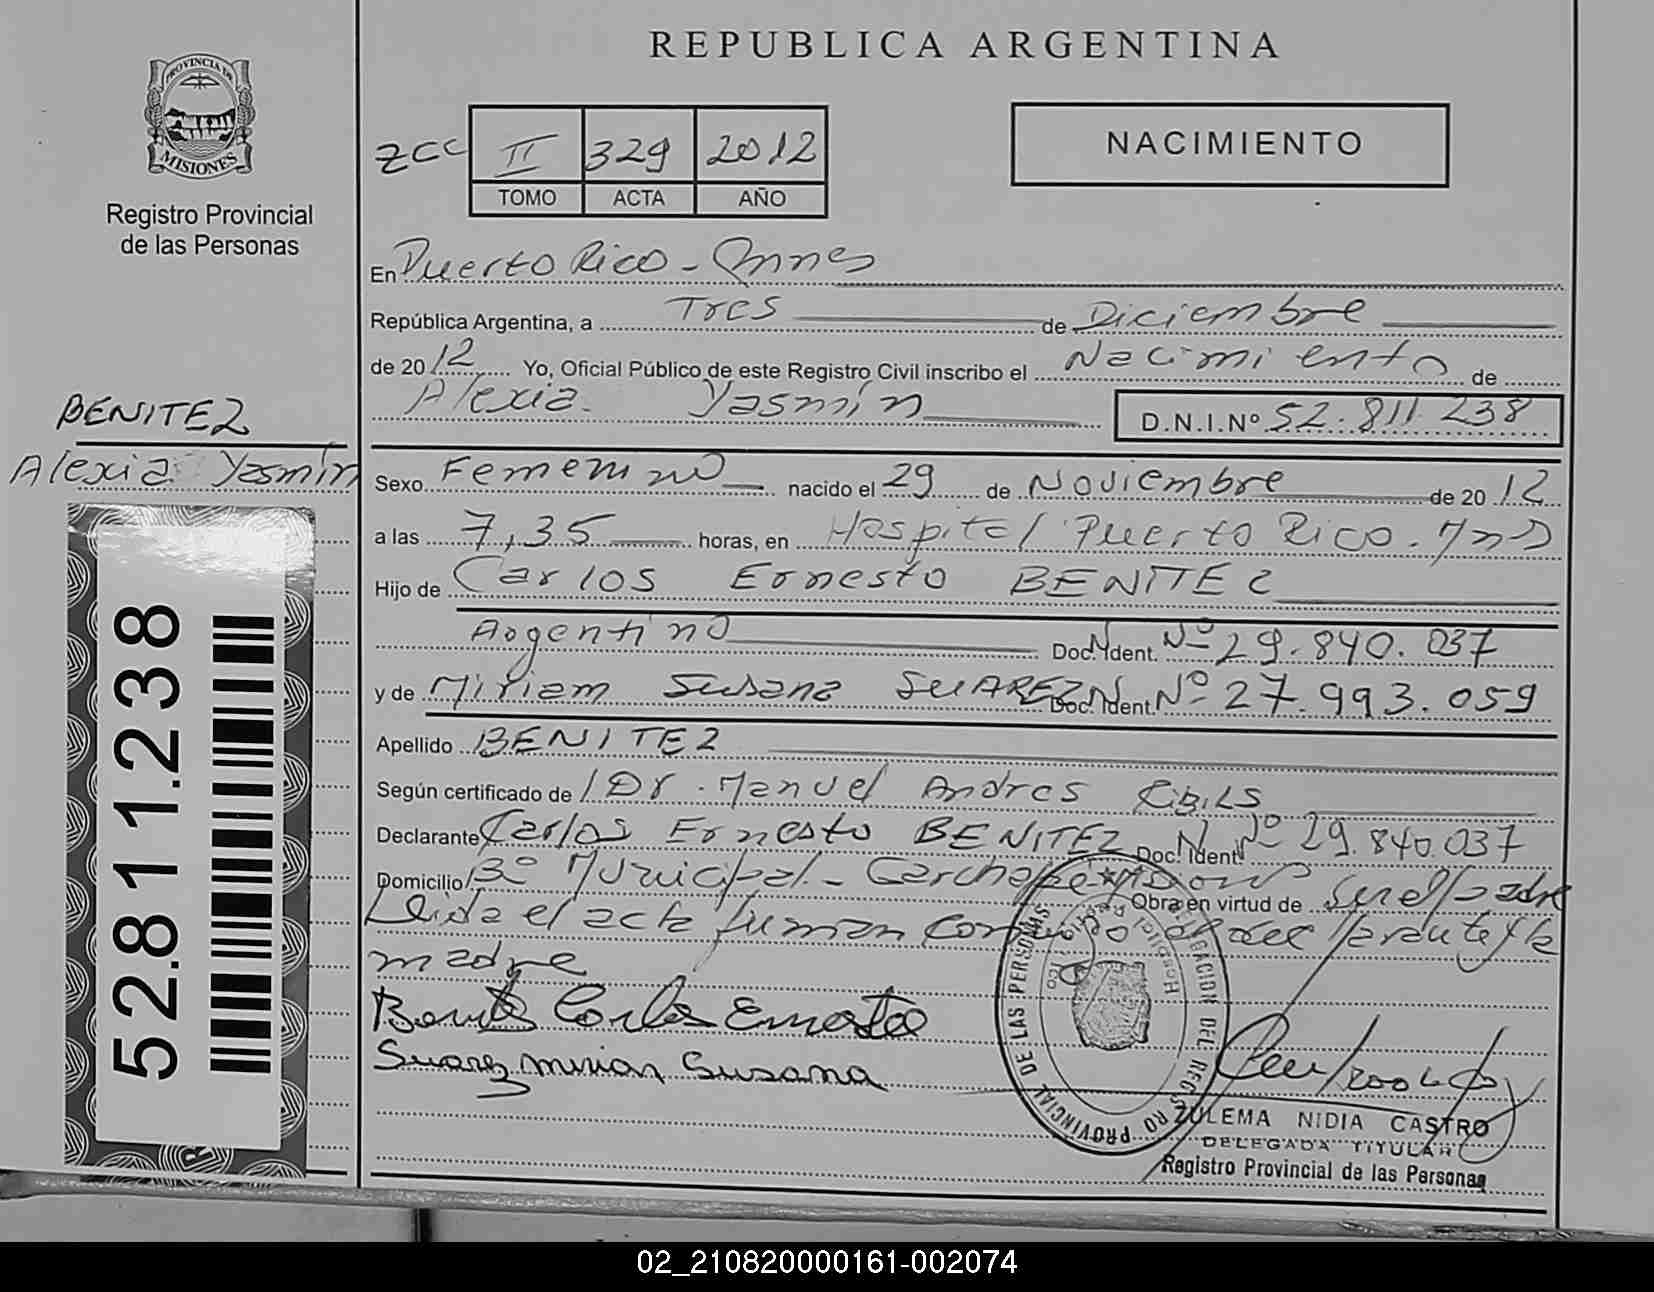 REPUBLICA ARGENTINA
PROVINCIA DE
MISIONES
Registro Provincial
de las Personas
ZCC II 329 2012
TOMO ACTA AÑO
NACIMIENTO
En Puerto Rico - Mnes
República Argentina, a Tres de Diciembre
de 2012 Yo, Oficial Público de este Registro Civil inscribo el Nacimiento de
Alexia Yasmín D.N.I.Nº 52.811.238
BENITEZ
Alexia Yasmín
Sexo Femenino nacido el 29 de Noviembre de 2012
a las 7,35 horas, en Hospital Puerto Rico. Mns
Hijo de Carlos Ernesto BENITEZ
Argentino Doc. Ident. Nº 29.840.037
y de Miriam Susana SUAREZ Doc. Ident. Nº 27.993.059
Apellido BENITEZ
Según certificado de Dr. Manuel Andres
Declarante Carlos Ernesto BENITEZ Doc. Ident. Nº 29.840.037
Domicilio Bº Municipal - Obra en virtud de Ser el padre
Leida el acta firman la
madre
Benitez Carlos Ernesto
Suarez Mirian Susana
52.811.238
DELEGACION DEL REGISTRO PROVINCIAL DE LAS PERSONAS
Hospital Puerto Rico
ZULEMA NIDIA CASTRO
DELEGADA TITULAR
Registro Provincial de las Personas
02_210820000161-002074